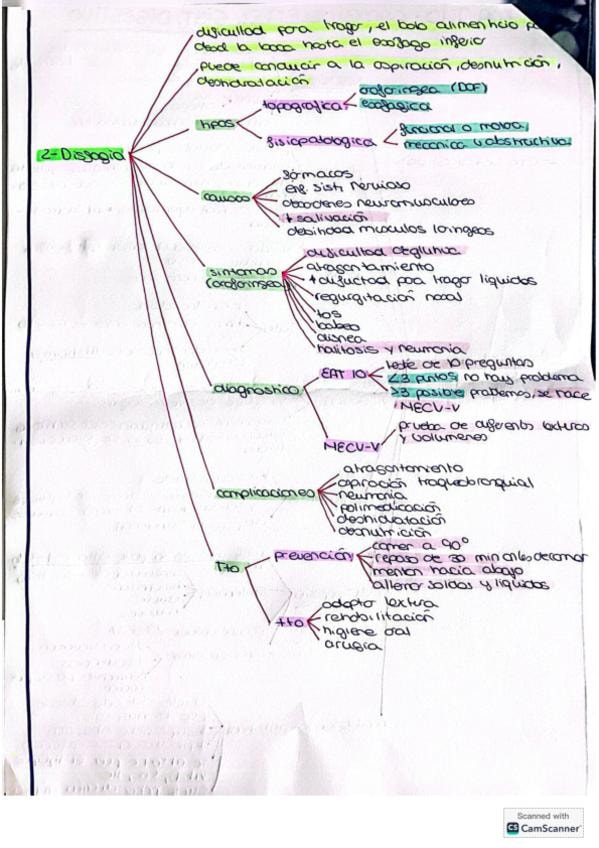 dificultad para tragar, el bolo alimenticio
desd la boca hasta el esofago inferior
puede conducir a la aspiración, desnutrición,
deshidratación
2-Disfagia
tipos
topografica
orofaringea (DOF)
esofagica
fisiopatologica
funcional o motora
mecanica u obstructiva
causas
farmacos
enf. sist nervioso
desordenes neuromusculares
+ salivación
debilidad musculos laringeos
sintomas
(orofaringea)
dificultad deglutir
atragantamiento
+ dificultad para tragar liquidos
regurgitación nasal
tos
babeo
disnea
halitosis y neumonia
diagnostico
EAT 10
teste de 10 preguntas
<3 puntos no hay problema
≥3 posible problemas se hace
MECV-V
MECV-V
prueba de diferents texturas
y volumenes
complicaciones
atragantamiento
aspiración traqueobronquial
neumonia
polimedicación
deshidratación
desnutrición
Tto
prevención
comer a 90°
reposo de 30 min antes de comer
menton hacia abajo
alterar solidos y liquidos
tto
adaptar textura
rehabilitación
higiene oral
cirugia
Scanned with
CS CamScanner